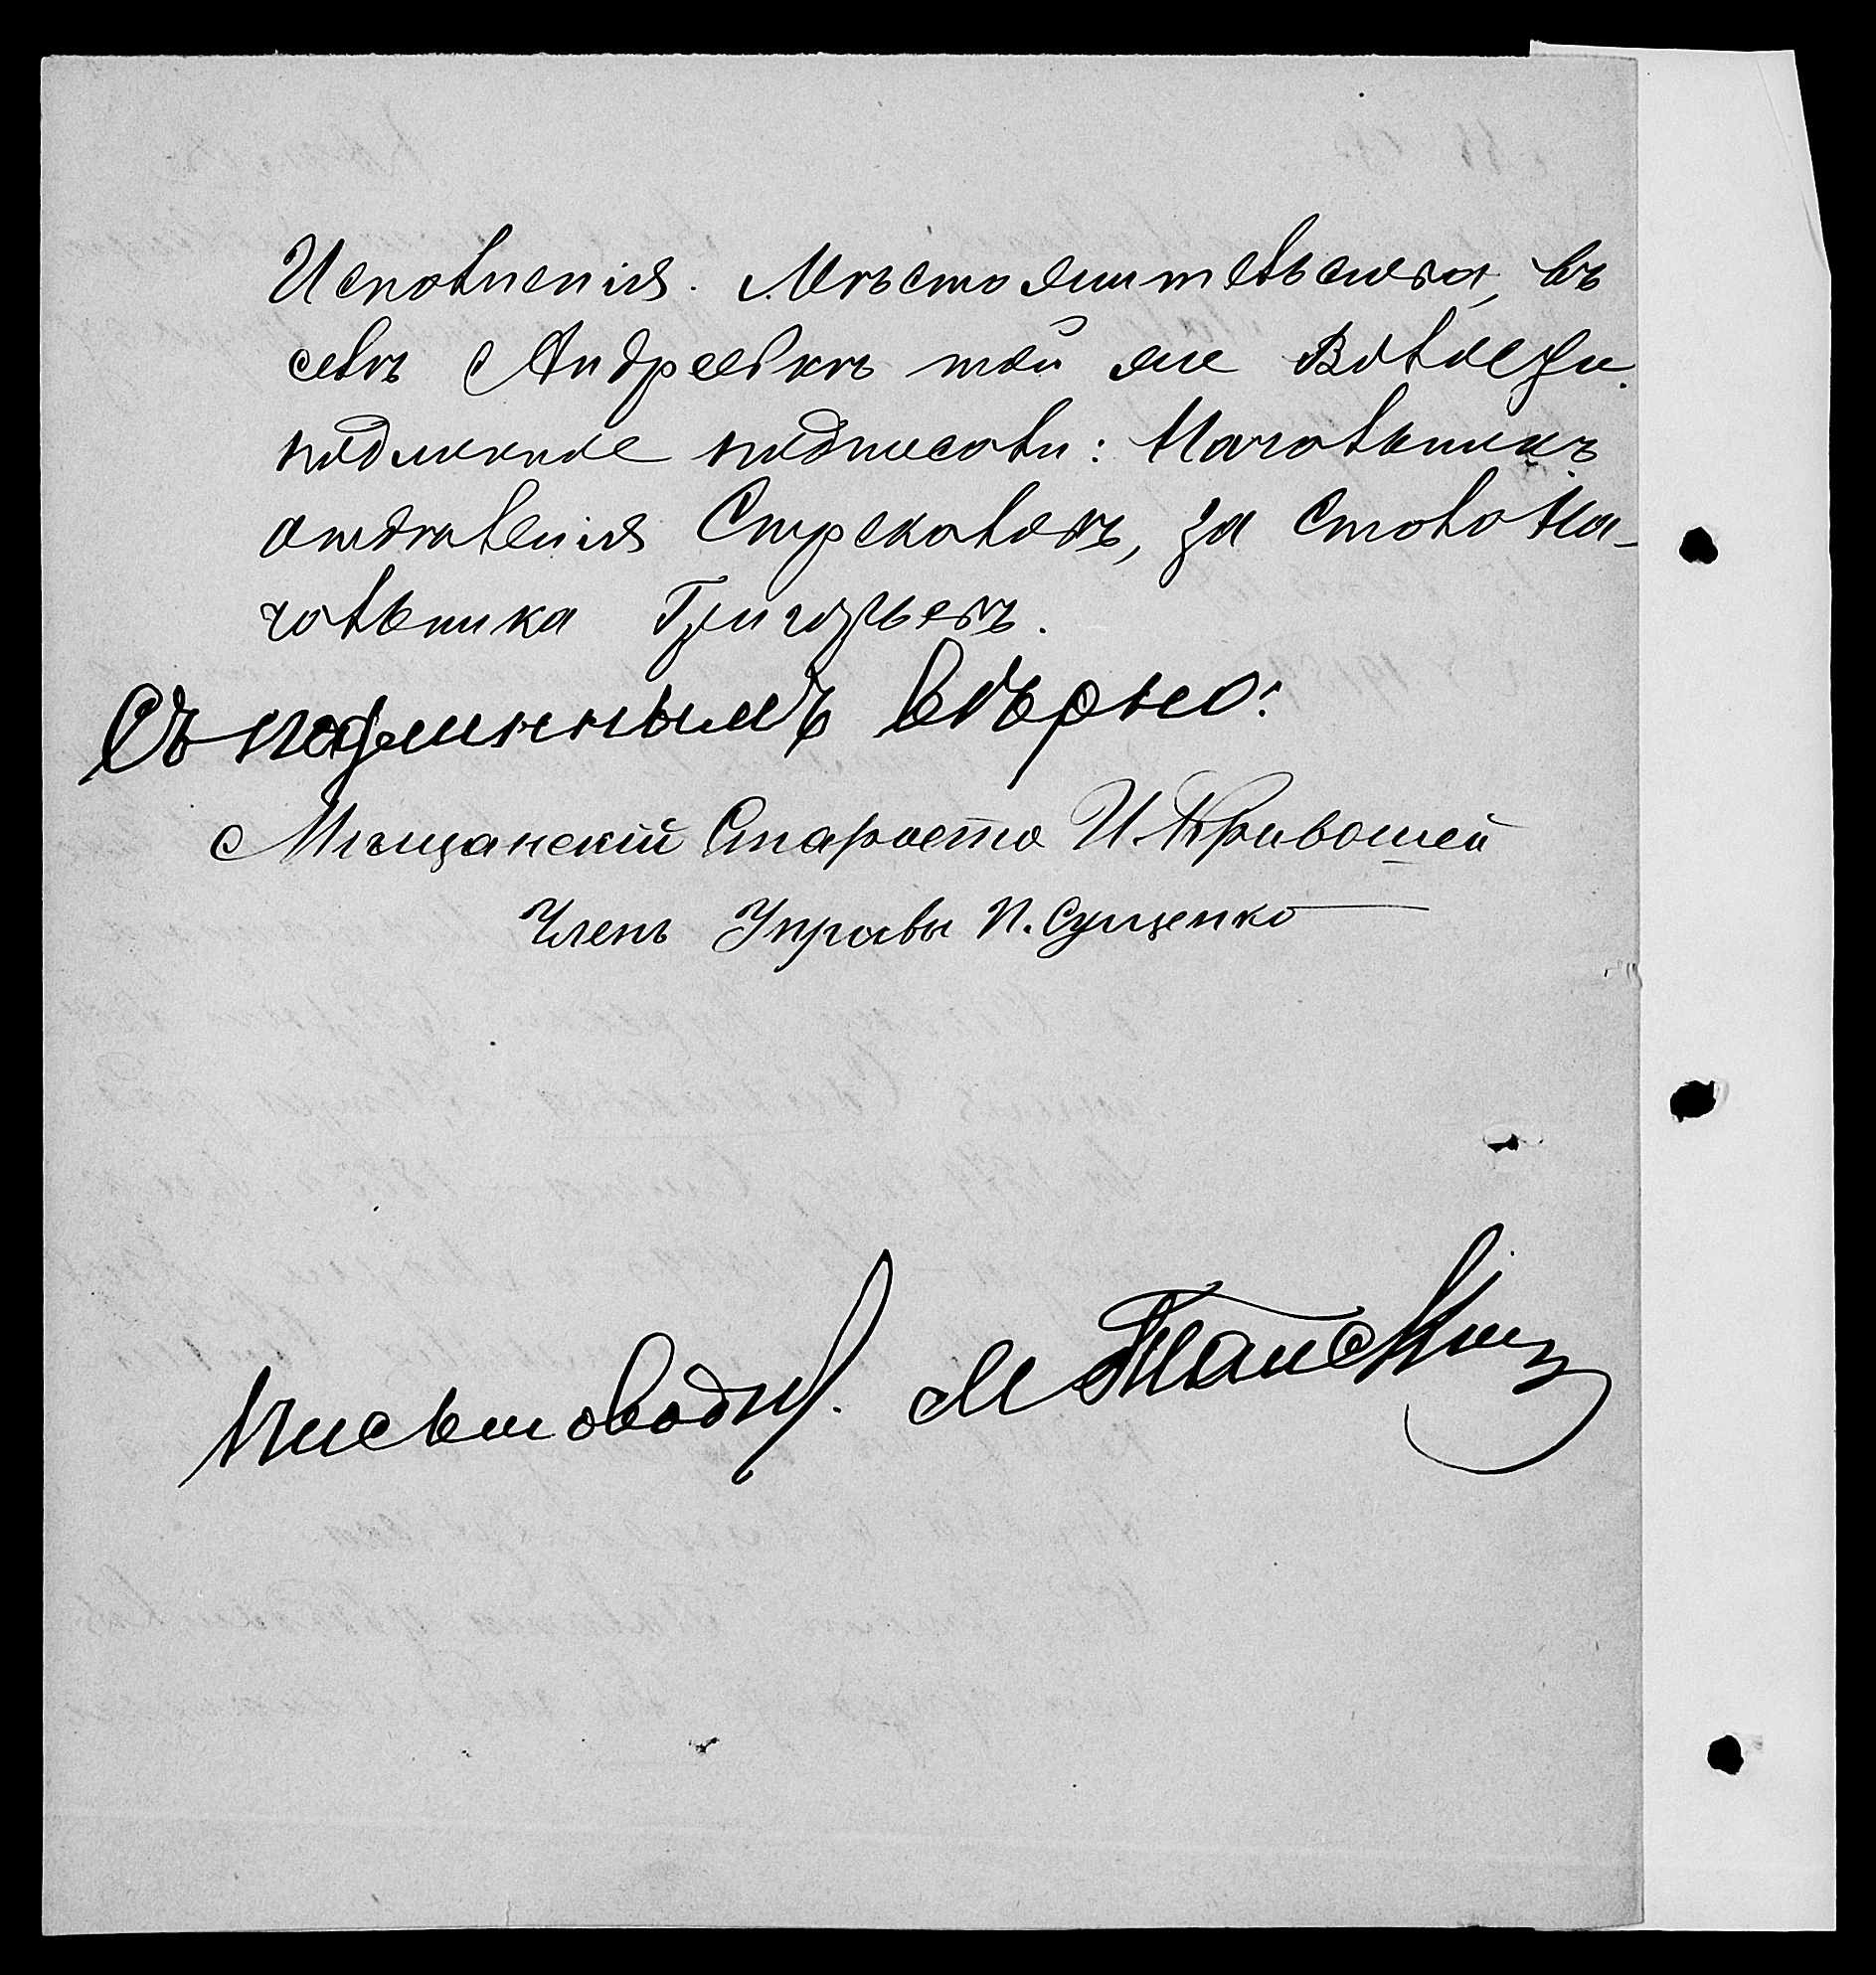 Исполненія. Мѣстожительства, въ
селѣ Андреевкѣ той же Волости.
подлинное подписали: Начальникъ
отдѣленія Стрекаловъ, за Столона-
чальника Григорьевъ.
Съ подлиннымъ вѣрно:
Мѣщанскій Староста И. Кривошей
Членъ Управы П. Сущенко
Письмоводит. М